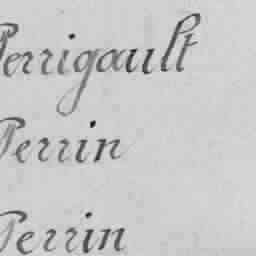 Perrigault
Perrin
Perrin